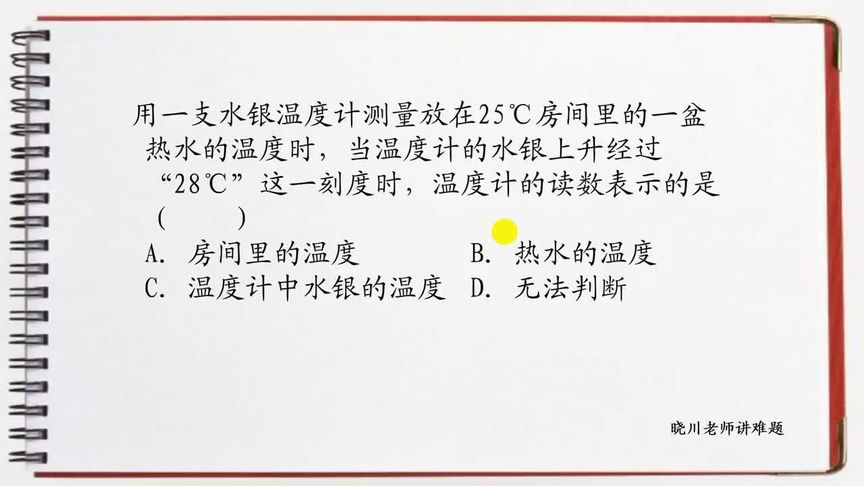 用一支水银温度计测量放在25℃房间里的一盆
热水的温度时，当温度计的水银上升经过
“28℃”这一刻度时，温度计的读数表示的是
(    )
A. 房间里的温度 B. 热水的温度
C. 温度计中水银的温度 D. 无法判断
晓川老师讲难题